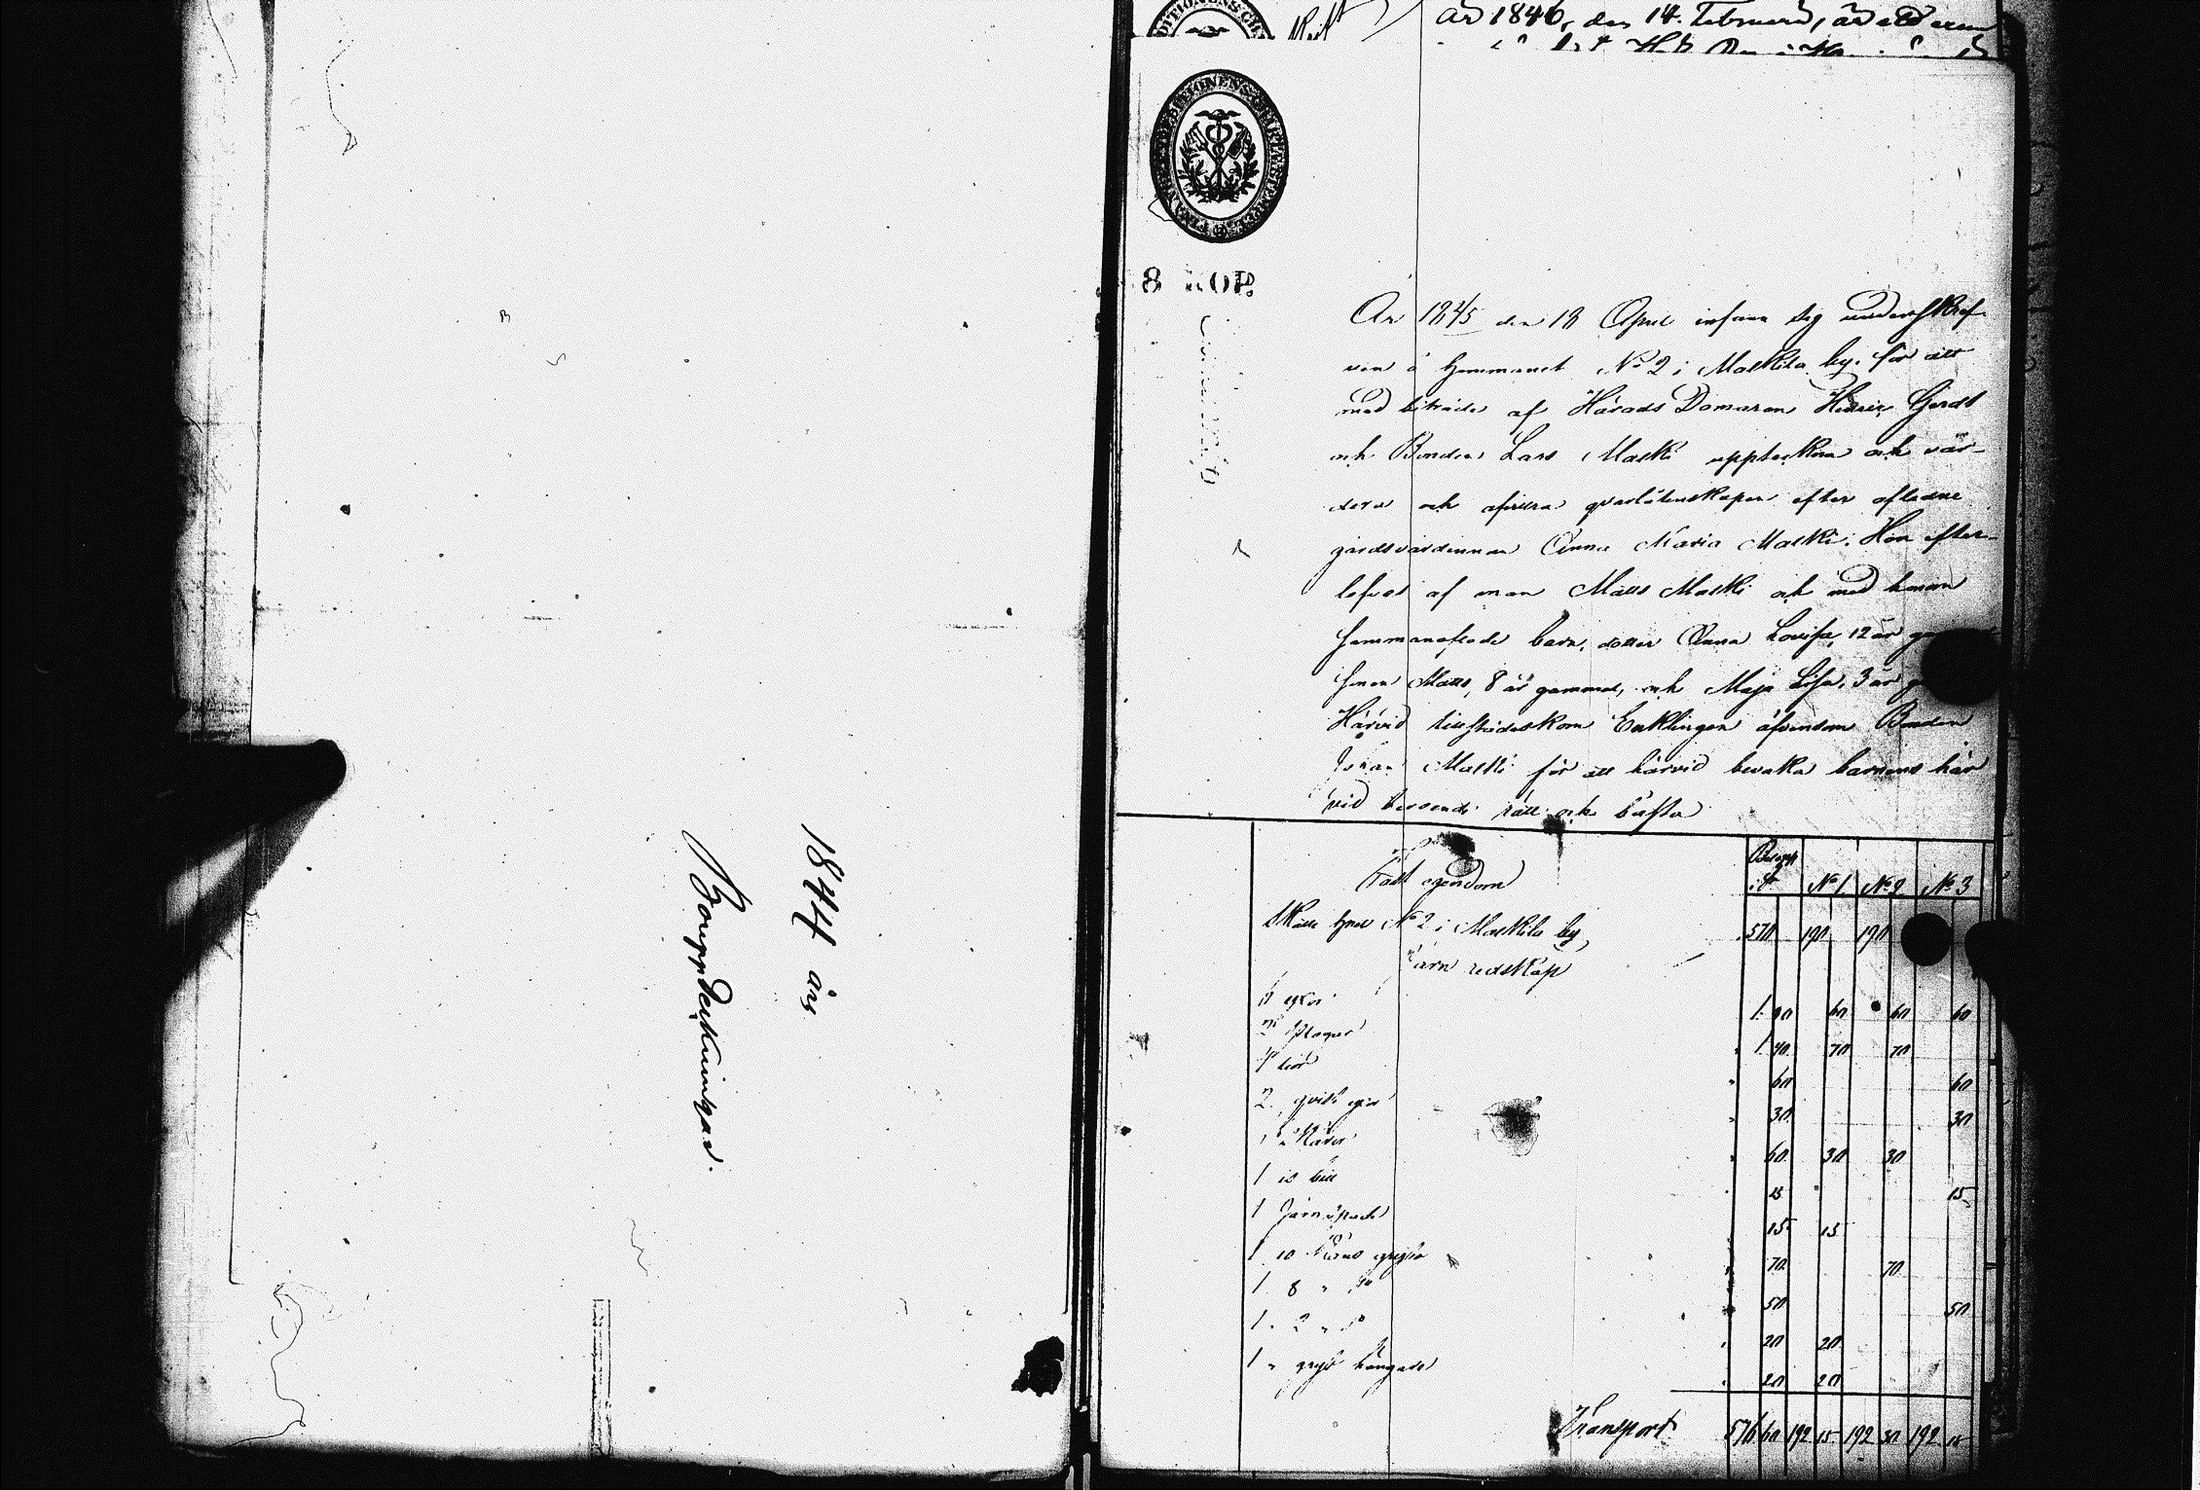 1844 års
Bouppteckningar.
År 1846, den 14 Februari, är
8 KOP.
År 1845 den 18 April infann sig underskref-
ven å hemmanet No 2 i Maskila by, för att
med biträde af Härads Domaren Gerdt
och Bonden Lars Maski uppteckna och vär-
dera och qvarlåtenskapen efter aflidne
gårdsvärdinnan Anna Maria Maski. Hon efter-
lefves af man Matts Maski och med honom
sammanaflade barn, dotter Anna Lovisa, 12 år
sonen Matts, 8 år gammal, och Maja Lisa, 3 år
Härvid tillstädeskom Enklingen äfvensom Bonden
Johan Maski för att härvid bevaka barnens här
vid beroende rätt och bästa
Fast egendom
No 1 No 2 No 3
Skatte hemt No 2 i Maskila by, 570 190 190
Järn redskap
yxor 1 80 60 60 60
1 40 70 70
60 60
2 30 30
60 30 30
1 is bill 15 15
1 Järnspade 15 15
1 10 kanns gryta 70 70
1 8 " do 50 50
1 2 " do 20 20
1 " gryt hängare 20 20
Transport 576 60 192 15 192 30 192 15